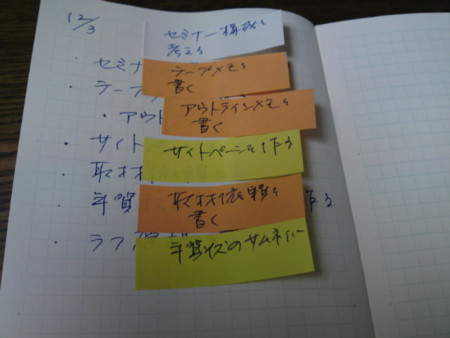 12/3
セミナー構成を
考える
・セミナ
テープメモを
書く
・テープ
アウトラインメモを
書く
・アウト
サイトページを作る
・サイト
取材依頼を
書く
・取材
・年賀
る
年賀状のサムネイル
・ラフ